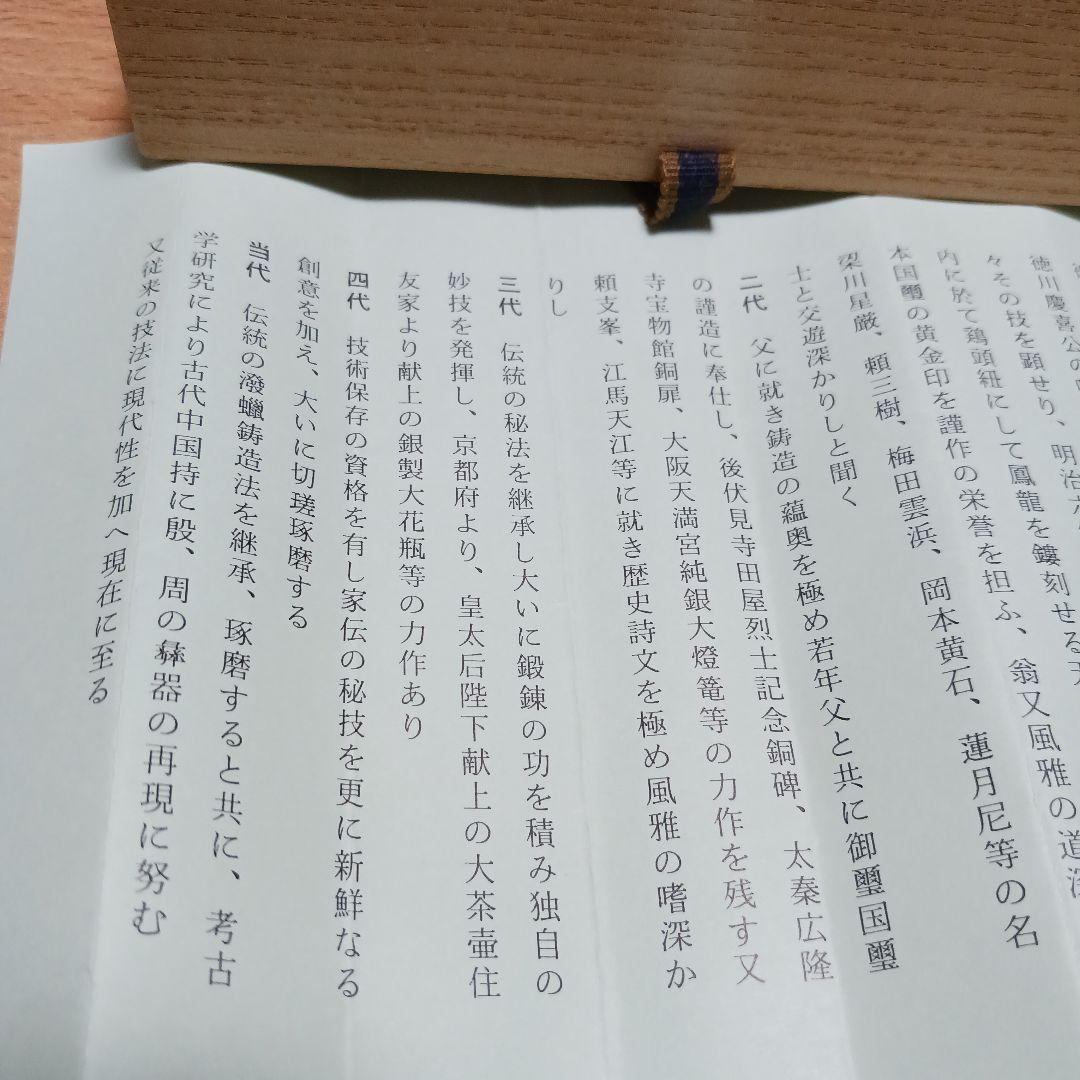 徳川慶喜公の
々その技を顕せり、明治
内に於て鶏頭紐にして鳳龍を鏤刻せる
本国璽の黄金印を謹作の栄誉を担ふ、翁又風雅の道
梁川星厳、頼三樹、梅田雲浜、岡本黄石、蓮月尼等の名
士と交遊深かりしと聞く
二代 父に就き鋳造の蘊奥を極め若年父と共に御璽国璽
の謹造に奉仕し、後伏見寺田屋烈士記念銅碑、太秦広隆
寺宝物館銅扉、大阪天満宮純銀大燈篭等の力作を残す又
頼支峯、江馬天江等に就き歴史詩文を極め風雅の嗜深か
りし
三代 伝統の秘法を継承し大いに鍛錬の功を積み独自の
妙技を発揮し、京都府より、皇太后陛下献上の大茶壷住
友家より献上の銀製大花瓶等の力作あり
四代 技術保存の資格を有し家伝の秘技を更に新鮮なる
創意を加え、大いに切瑳琢磨する
当代 伝統の潑蠟鋳造法を継承、琢磨すると共に、考古
学研究により古代中国持に殷、周の彝器の再現に努む
又従来の技法に現代性を加へ現在に至る